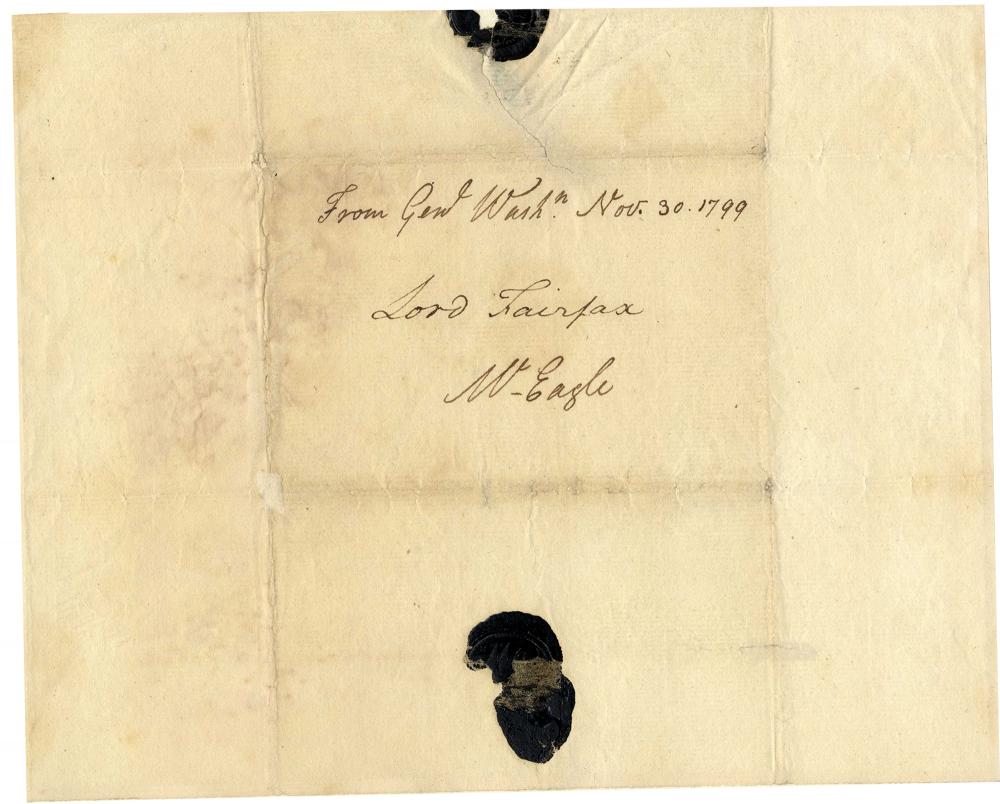 From Genl Washn. Nov. 30. 1799
Lord Fairfax
Mt Eagle